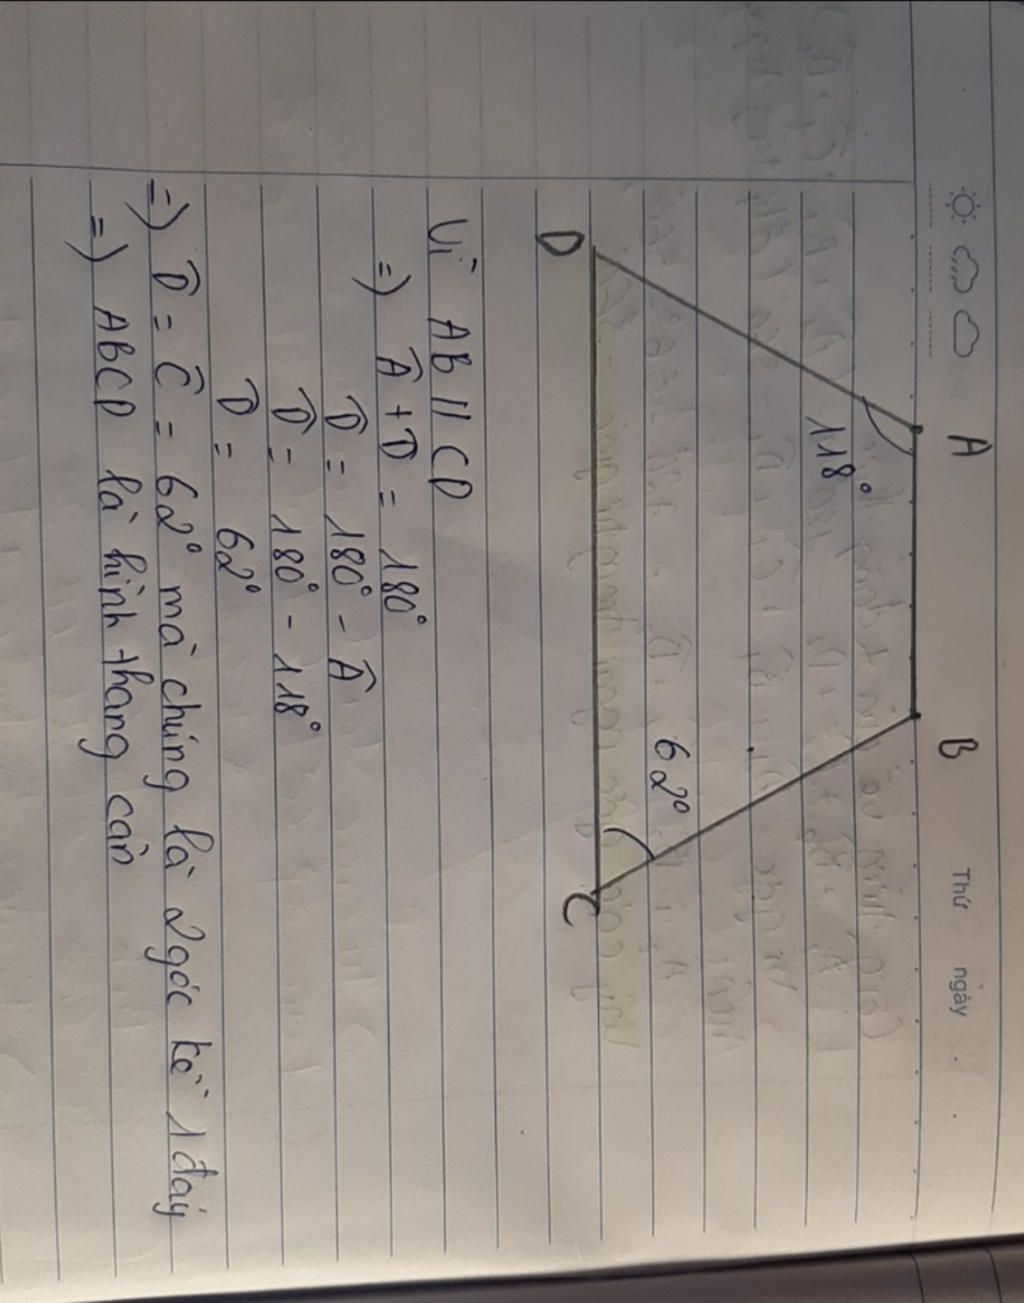 Thứ ngày
A B
118°
62°
D C
Vì AB // CD
=) Â + D̂ = 180°
D̂ = 180° - Â
D̂ = 180° - 118°
D̂ = 62°
=) D̂ = Ĉ = 62° mà chúng là 2 góc kề 1 đáy
=) ABCD là hình thang cân